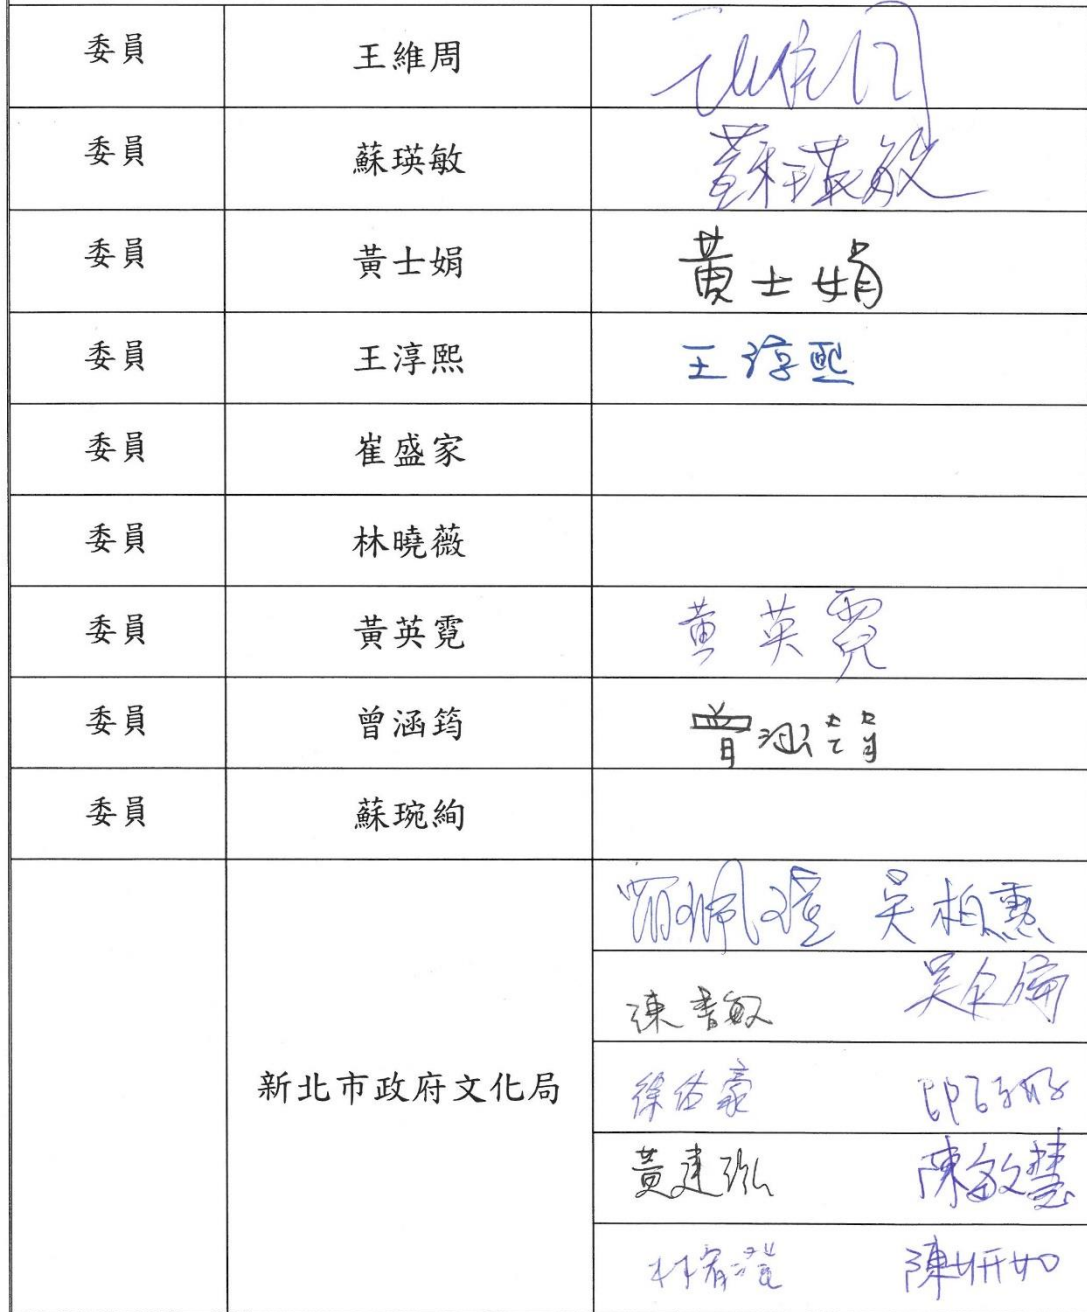 委員 王維周 王維周
委員 蘇瑛敏 蘇瑛敏
委員 黃士娟 黃士娟
委員 王淳熙 王淳熙
委員 崔盛家
委員 林曉薇
委員 黃英霓 黃英霓
委員 曾涵筠 曾涵筠
委員 蘇琬絢
新北市政府文化局
吳柏熏
陳書敏
徐佑豪
黃建泓 陳敏慧
陳妍如